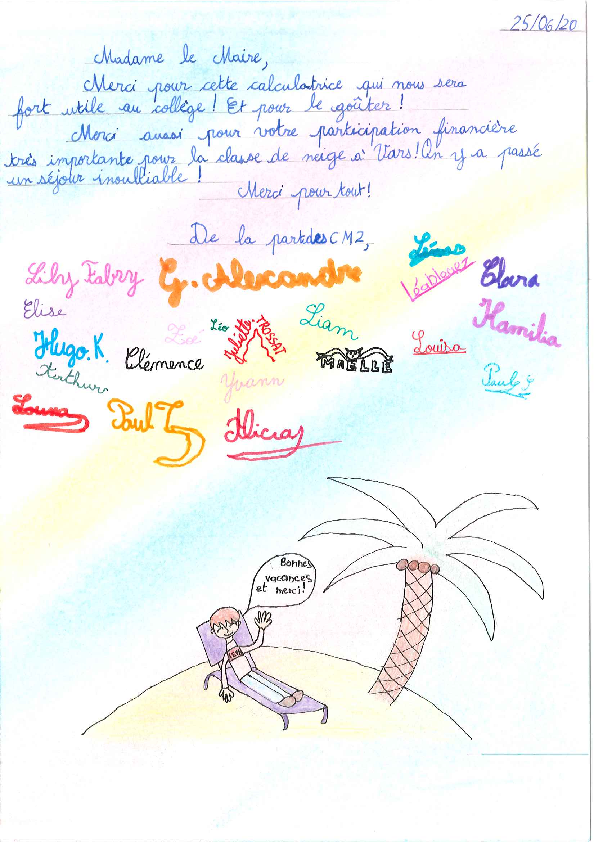 25/06/20
Madame le Maire,
Merci pour cette calculatrice qui nous sera
fort utile au collège ! Et pour le goûter !
Merci aussi pour votre participation financière
très importante pour la classe de neige à Vars ! On y a passé
un séjour inoulliable !
Merci pour tout !
De la part des CM2,
Lily Fabry G. Alexandre Clara
Elise Kamilia
Hugo.K. Zoé Léo Juliette.TROSSAT Liam Louisa
Arthur Clémence MAËLLE
Yvann Paul
Louna Paul T Alicia
Bonnes
vacances
et merci !